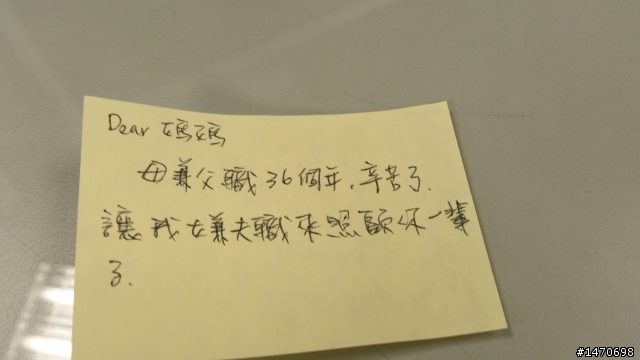 Dear 媽媽
母兼父職 36個年,辛苦了.
讓我女兼夫職來照顧你一輩
子.
#1470698